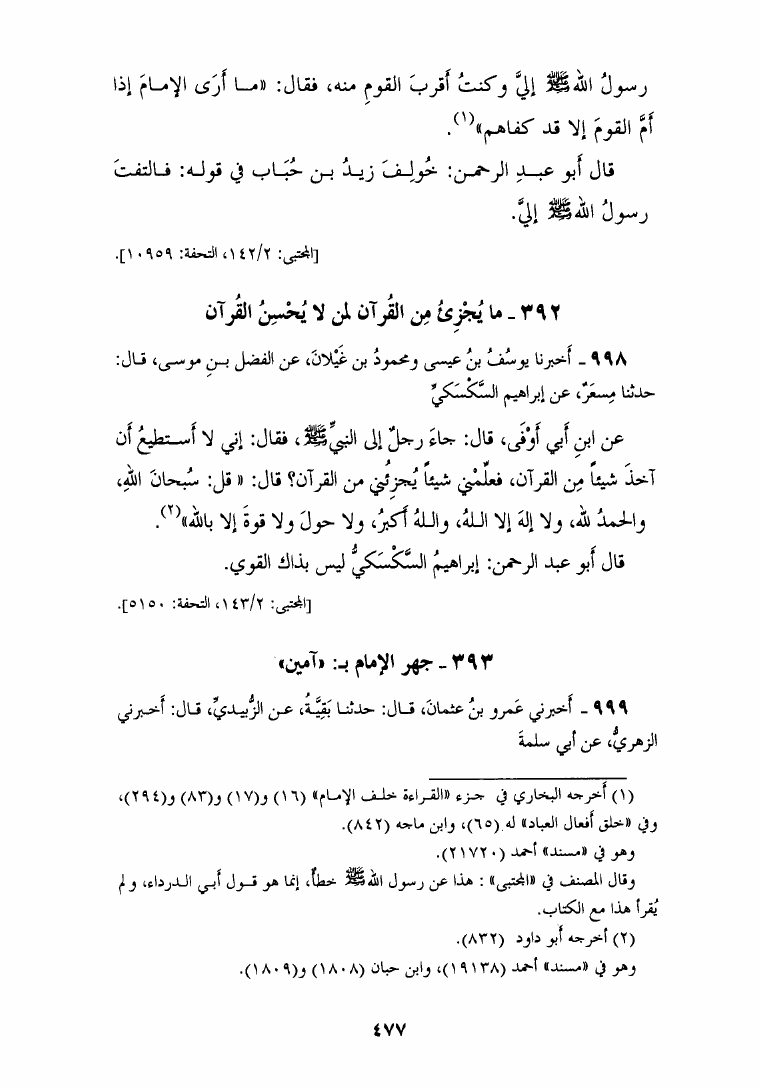 رسولُ الله ﷺ إليَّ وكنتُ أقربَ القومِ منه، فقال: «مـا أَرَى الإمـامَ إذا
أَمَّ القومَ إلا قد كفاهم»(١).
قال أبو عبـدِ الرحمـن: خُولِـفَ زيـدُ بـن حُبَـاب في قولـه: فـالتفتَ
رسولُ الله ﷺ إليَّ.
[المجتبى: ١٤٢/٢، التحفة: ١٠٩٥٩].
٣٩٢ ـ ما يُجْزِئُ مِن القُرآن لمن لا يُحْسِنُ القُرآن
٩٩٨ ـ أخبرنا يوسُفُ بنُ عيسى ومحمودُ بن غَيْلانَ، عن الفضل بـنِ موسـى، قـال:
حدثنا مِسعَرٌ، عن إبراهيم السَّكْسَكيِّ
عن ابنِ أبي أَوْفَى، قال: جاءَ رجلٌ إلى النبيِّ ﷺ، فقال: إني لا أَسـتطيعُ أن
آخذَ شيئاً مِن القرآن، فعلِّمْني شيئاً يُجزِئُني من القرآن؟ قال: «قل: سُبحانَ اللهِ،
والحمدُ لله، ولا إلهَ إلا اللهُ، واللهُ أَكبرُ، ولا حولَ ولا قوةَ إلا بالله»(٢).
قال أبو عبد الرحمن: إبراهيمُ السَّكْسَكيُّ ليس بذاك القوي.
[المجتبى: ١٤٣/٢، التحفة: ٥١٥٠].
٣٩٣ ـ جهر الإمام بـ: «آمين»
٩٩٩ ـ أخبرني عَمرو بنُ عثمانَ، قـال: حدثنـا بَقِيَّـةُ، عـن الزُّبيـديِّ، قـال: أَخـبرني
الزهريُّ، عن أبي سلمةَ
(١) أخرجه البخاري في جـزء «القـراءة خلـف الإمـام» (١٦) و(١٧) و(٨٣) و(٢٩٤)،
وفي «خلق أفعال العباد» له (٦٥)، وابن ماجه (٨٤٢).
وهو في «مسند» أحمد (٢١٧٢٠).
وقال المصنف في «المجتبى» : هذا عن رسول الله ﷺ خطأٌ، إنما هو قـول أبـي الـدرداء، و لم
يُقرأ هذا مع الكتاب.
(٢) أخرجه أبو داود (٨٣٢).
وهو في «مسند» أحمد (١٩١٣٨)، وابن حبان (١٨٠٨) و(١٨٠٩).
٤٧٧